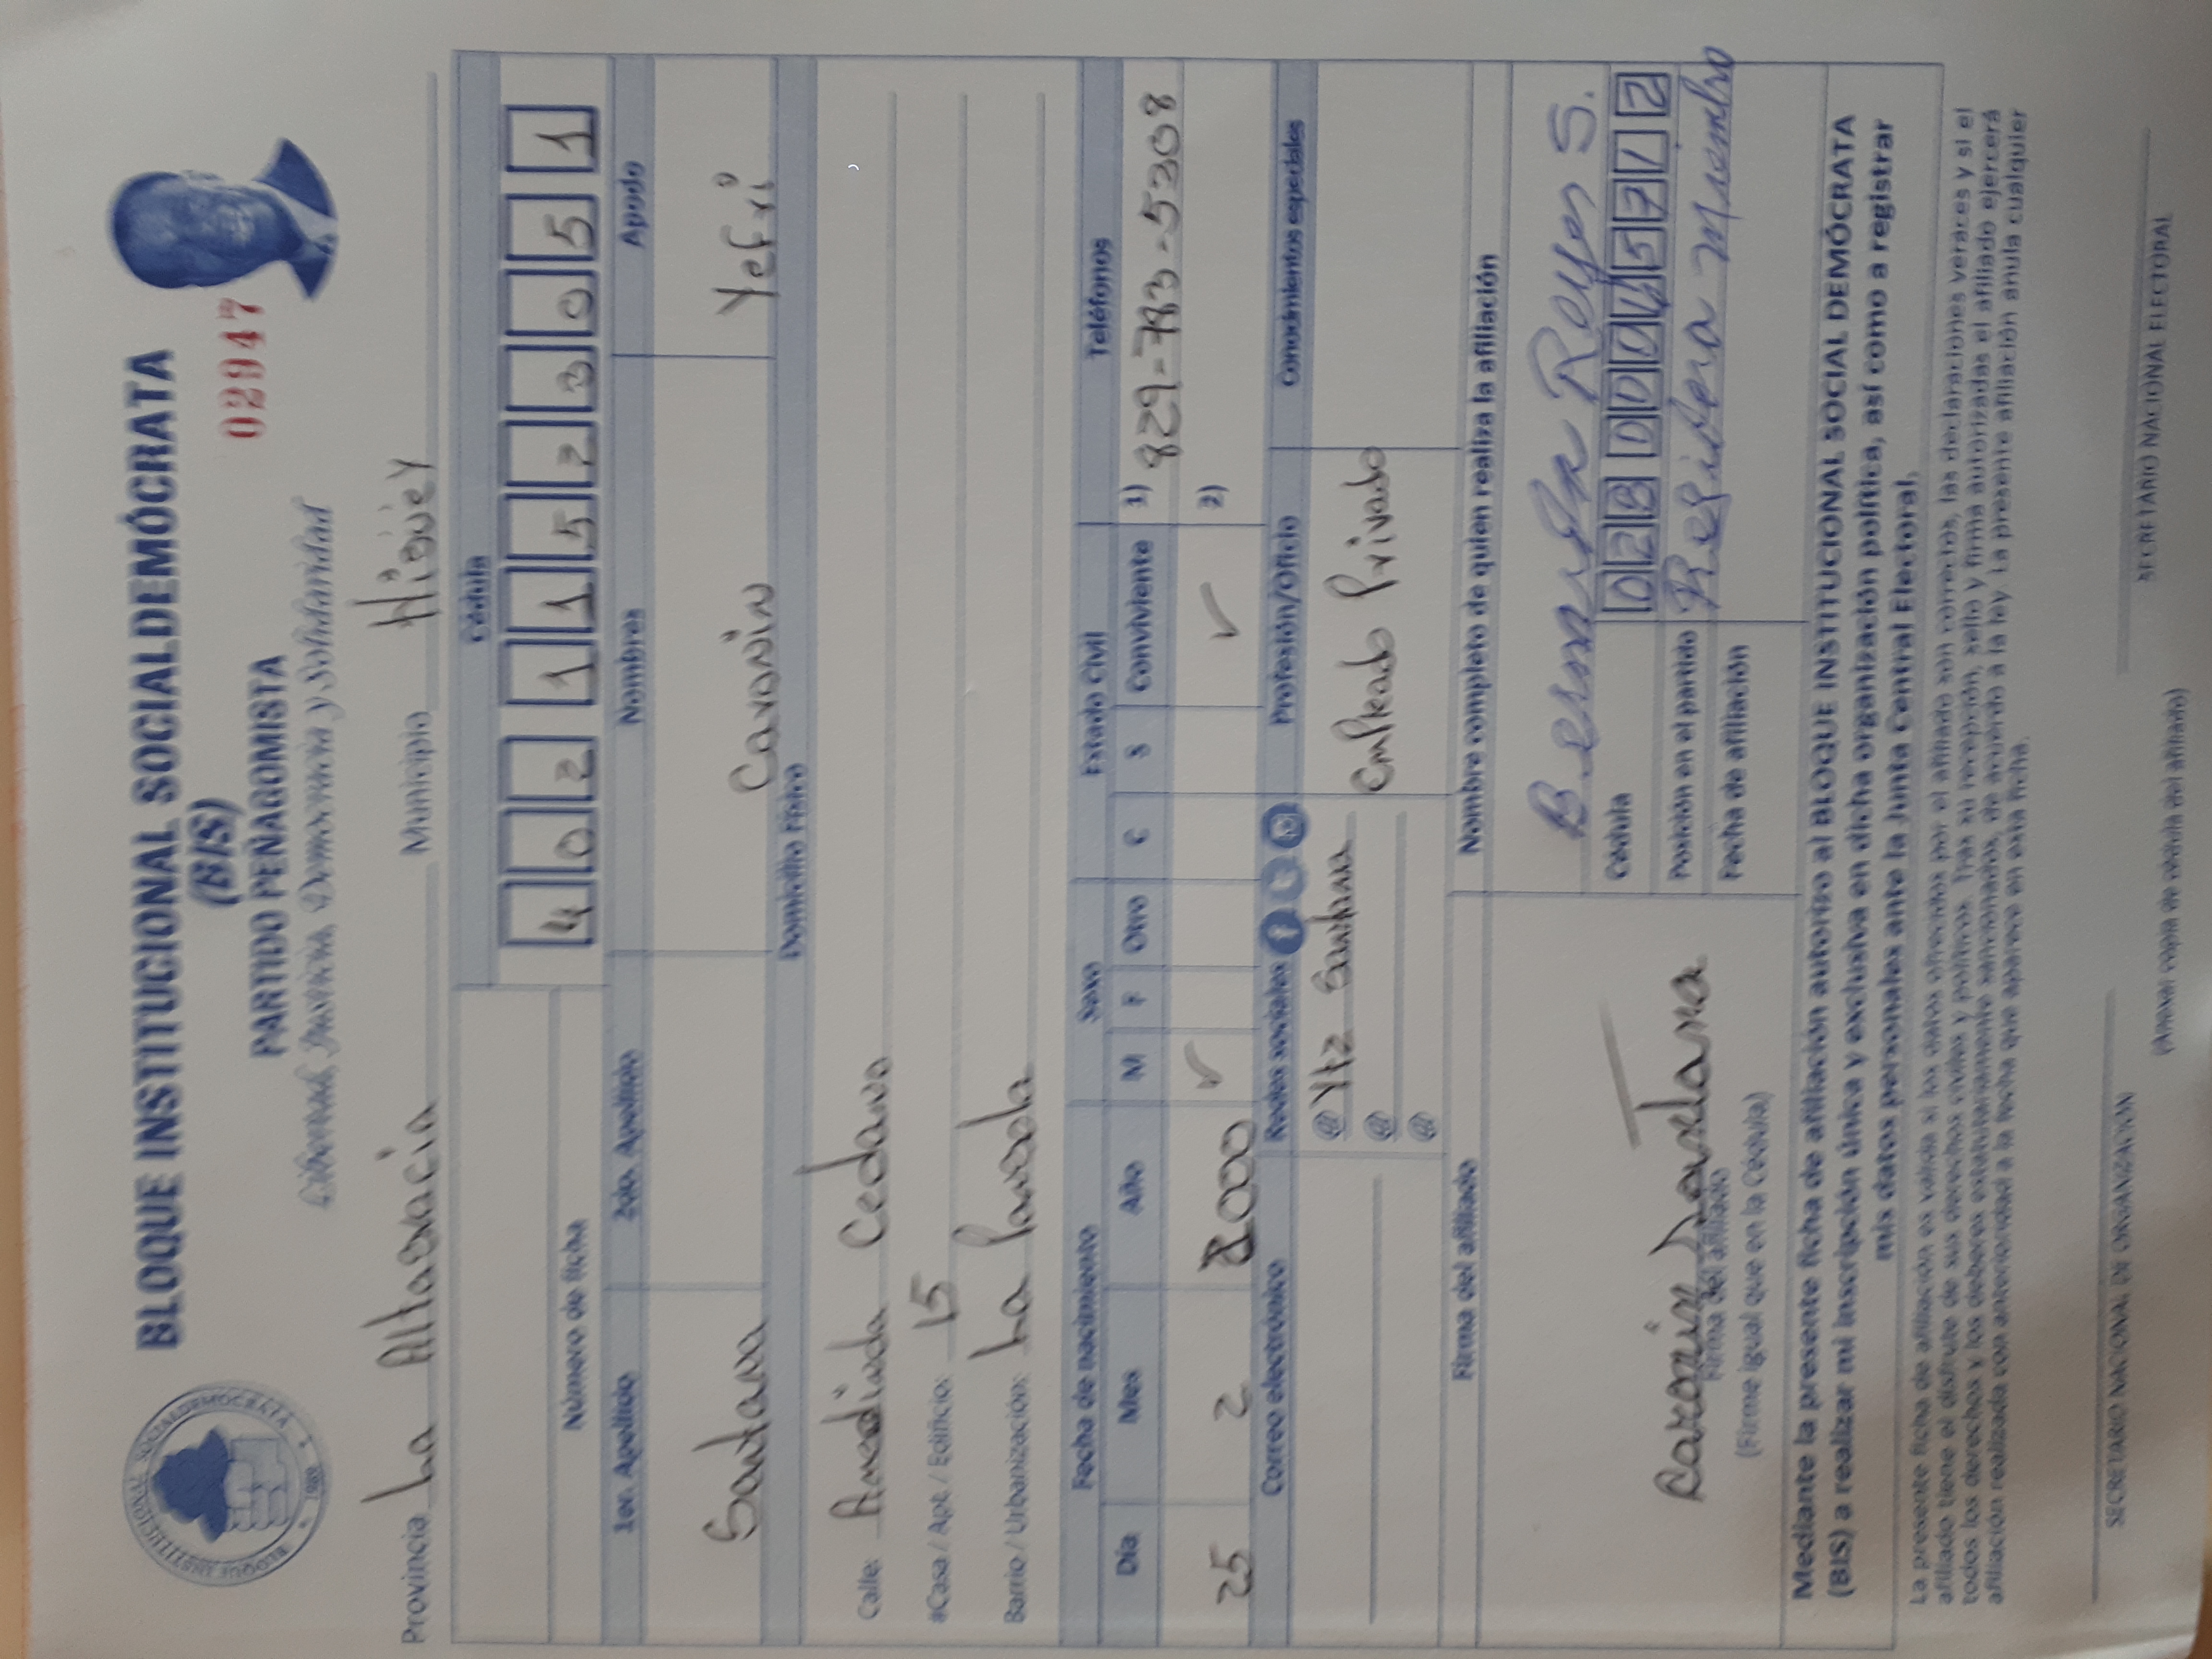 BLOQUE INSTITUCIONAL SOCIALDEMÓCRATA
(BIS)
PARTIDO PEÑAGOMISTA
Libertad, Justicia, Democracia y Solidaridad
02947
BLOQUE INSTITUCIONAL SOCIALDEMÓCRATA
Provincia La Altagracia Municipio Higüey
Cédula
Número de ficha 4 0 2 1 1 5 2 3 0 5 1
1er. Apellido 2do. Apellido Nombres Apodo
Santana Yefri
Domicilio Físico
Calle: Cedano
#Casa / Apt. / Edificio: 15
Barrio / Urbanización: La
Fecha de nacimiento Sexo Estado Civil Teléfonos
Día Mes Año M F Otro C S Conviviente 1) 829-793-5208
25 2 2000 ✓ ✓ 2)
Correo electrónico Redes sociales Profesión/Oficio Conocimientos especiales
@
@ Empleado Privado
@
Firma del afiliado Nombre completo de quien realiza la afiliación
Reyes S.
Cédula
Posición en el partido Miembro
Fecha de afiliación
Firma del afiliado
(Firme igual que en la Cédula)
Mediante la presente ficha de afiliación autorizo al BLOQUE INSTITUCIONAL SOCIAL DEMÓCRATA
(BIS) a realizar mi inscripción única y exclusiva en dicha organización política, así como a registrar
mis datos personales ante la Junta Central Electoral.
La presente ficha de afiliación es válida si los datos ofrecidos por el afiliado son correctos, las declaraciones veraces y si el
afiliado tiene el disfrute de sus derechos civiles y políticos. Tras su recepción, sello y firma autorizadas el afiliado ejercerá
todos los derechos y los deberes estatutariamente sancionados, de acuerdo a la ley. La presente afiliación anula cualquier
afiliación realizada con anterioridad a la fecha que aparece en esta ficha.
SECRETARIO NACIONAL DE ORGANIZACIÓN SECRETARIO NACIONAL ELECTORAL
(Anexar copia de cédula del afiliado)